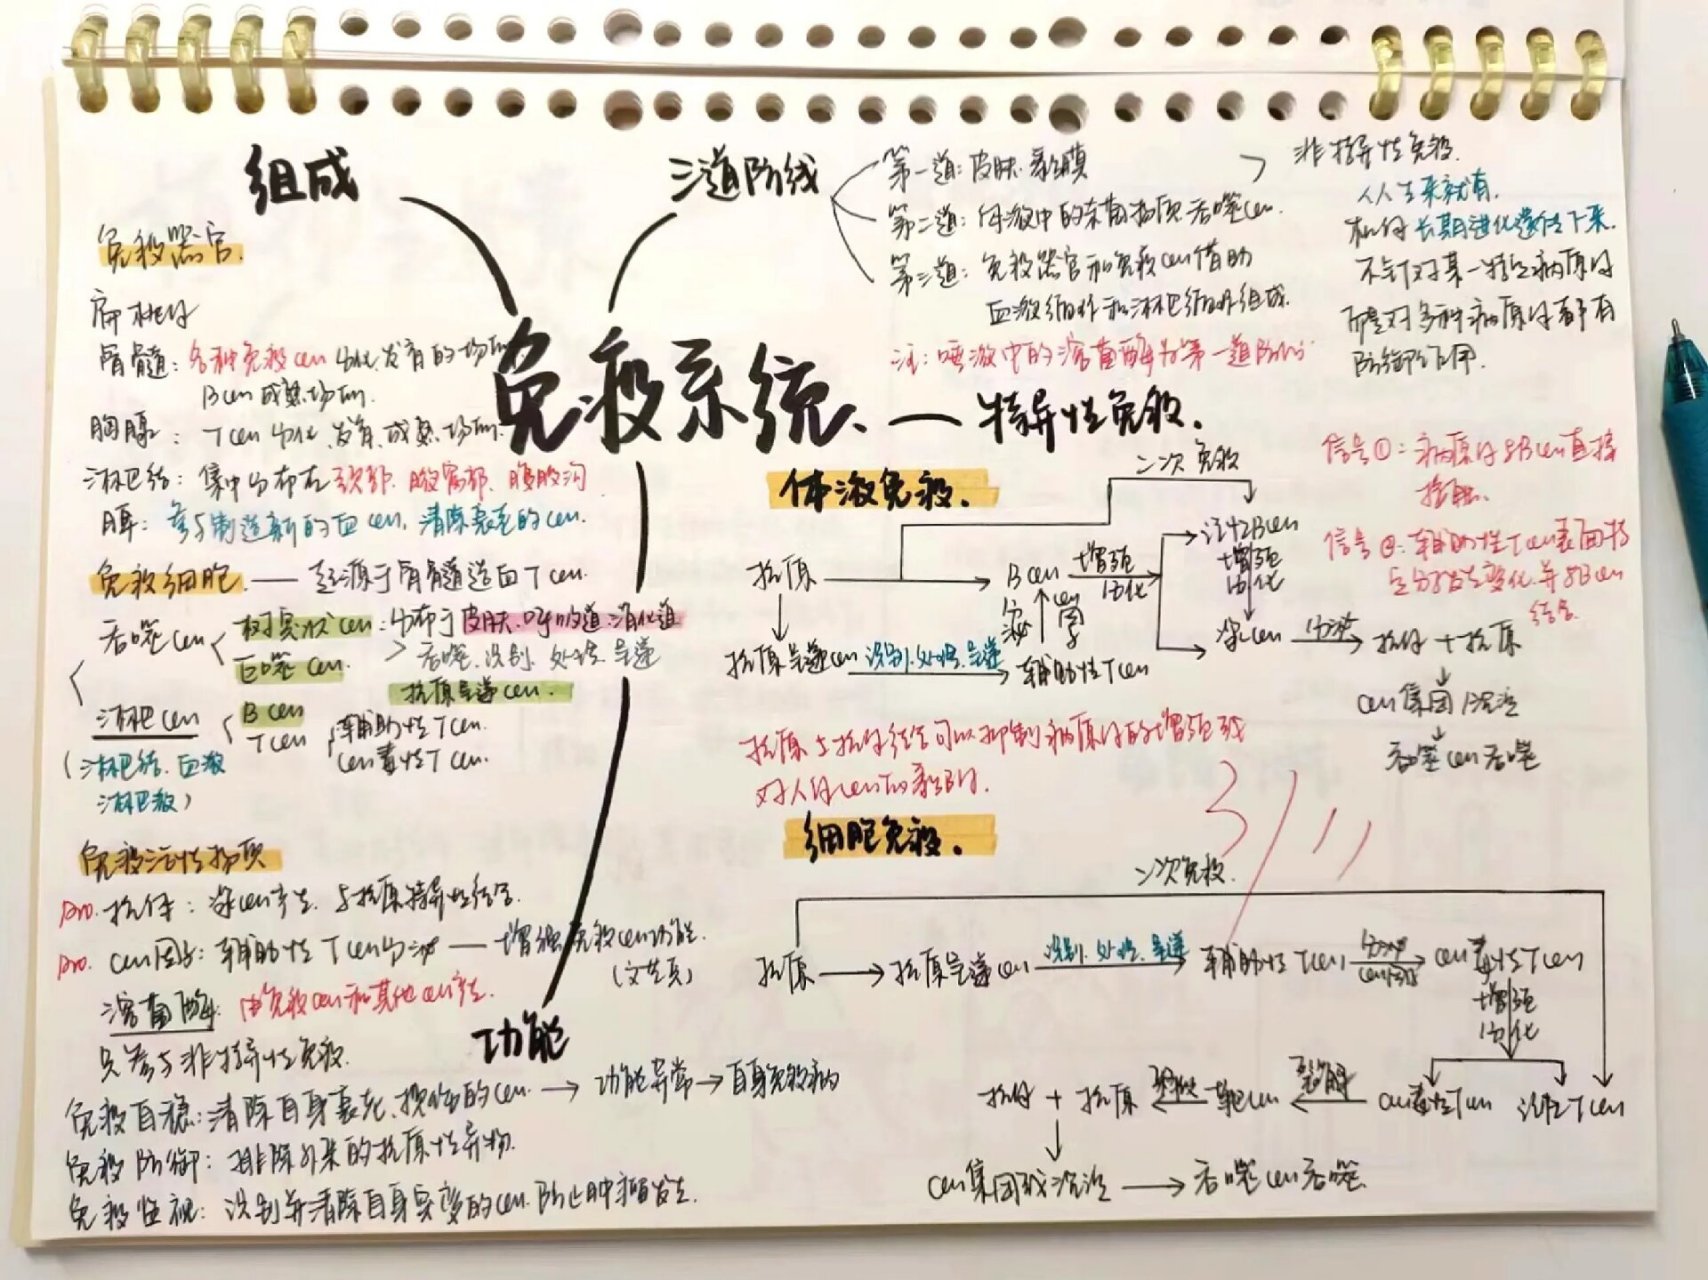 组成
免疫器官.
扁桃体
骨髓：各种免疫cell分化.发育的场所
Bcell成熟场所.
胸腺：Tcell分化、发育、成熟、场所.
淋巴结：集中分布在颈部、腋窝部、腹股沟
脾：参与制造新的血cell，清除衰老的cell.
免疫细胞 —— 起源于骨髓造血Tcell.
吞噬cell
树突状cell：分布于皮肤.呼吸道.消化道
巨噬cell
吞噬.识别.处理.呈递
抗原呈递cell.
淋巴cell
Bcell
Tcell
辅助性Tcell.
cell毒性Tcell.
(淋巴结、血液
淋巴液)
免疫活性物质
pro. 抗体：浆cell产生.与抗原特异性结合.
pro. cell因子：辅助性Tcell分泌 — 增强免疫cell功能.
溶菌酶：由免疫cell和其他cell产生.
只参与非特异性免疫.
免疫系统.
三道防线
第一道：皮肤.黏膜
第二道：体液中的杀菌物质.吞噬cell.
第三道：免疫器官和免疫cell借助
血液循环和淋巴循环组成.
注：唾液中的溶菌酶为第一道防线
非特异性免疫.
人人生来就有.
机体长期进化遗传下来.
不针对某一特定病原体
而是对多种病原体都有
防御作用.
特异性免疫.
体液免疫.
二次免疫
抗原
Bcell
增殖
分化
记忆Bcell
增殖
分化
浆cell
分泌
抗体 + 抗原
cell集团 沉淀
吞噬cell吞噬
抗原呈递cell
识别.处理.呈递
辅助性Tcell
分泌
cell因子
信号①：病原体与Bcell直接
接触.
信号②：辅助性Tcell表面特
定分子发生变化.并与Bcell
结合.
抗原与抗体结合可以抑制病原体的增殖或
对人体cell的黏附.
3/11
细胞免疫.
二次免疫.
抗原
抗原呈递cell
识别.处理.呈递
辅助性Tcell
分泌
cell因子
cell毒性Tcell
增殖
分化
cell毒性Tcell
记忆Tcell
裂解
靶cell
释放
抗体 + 抗原
cell集团或沉淀
吞噬cell吞噬.
功能
免疫自稳：清除自身衰老.损伤的cell. → 功能异常 → 自身免疫病
免疫防御：排除外来的抗原性异物.
免疫监视：识别并清除自身突变的cell.防止肿瘤发生.